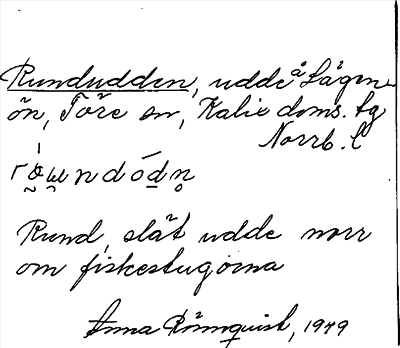 Rundudden, udde å Lågen
ön, Töre sn, Kalix doms. tg
Norrb. l
Rund, slät udde norr
om fiskestugorna
Anna Rönnquist, 1949